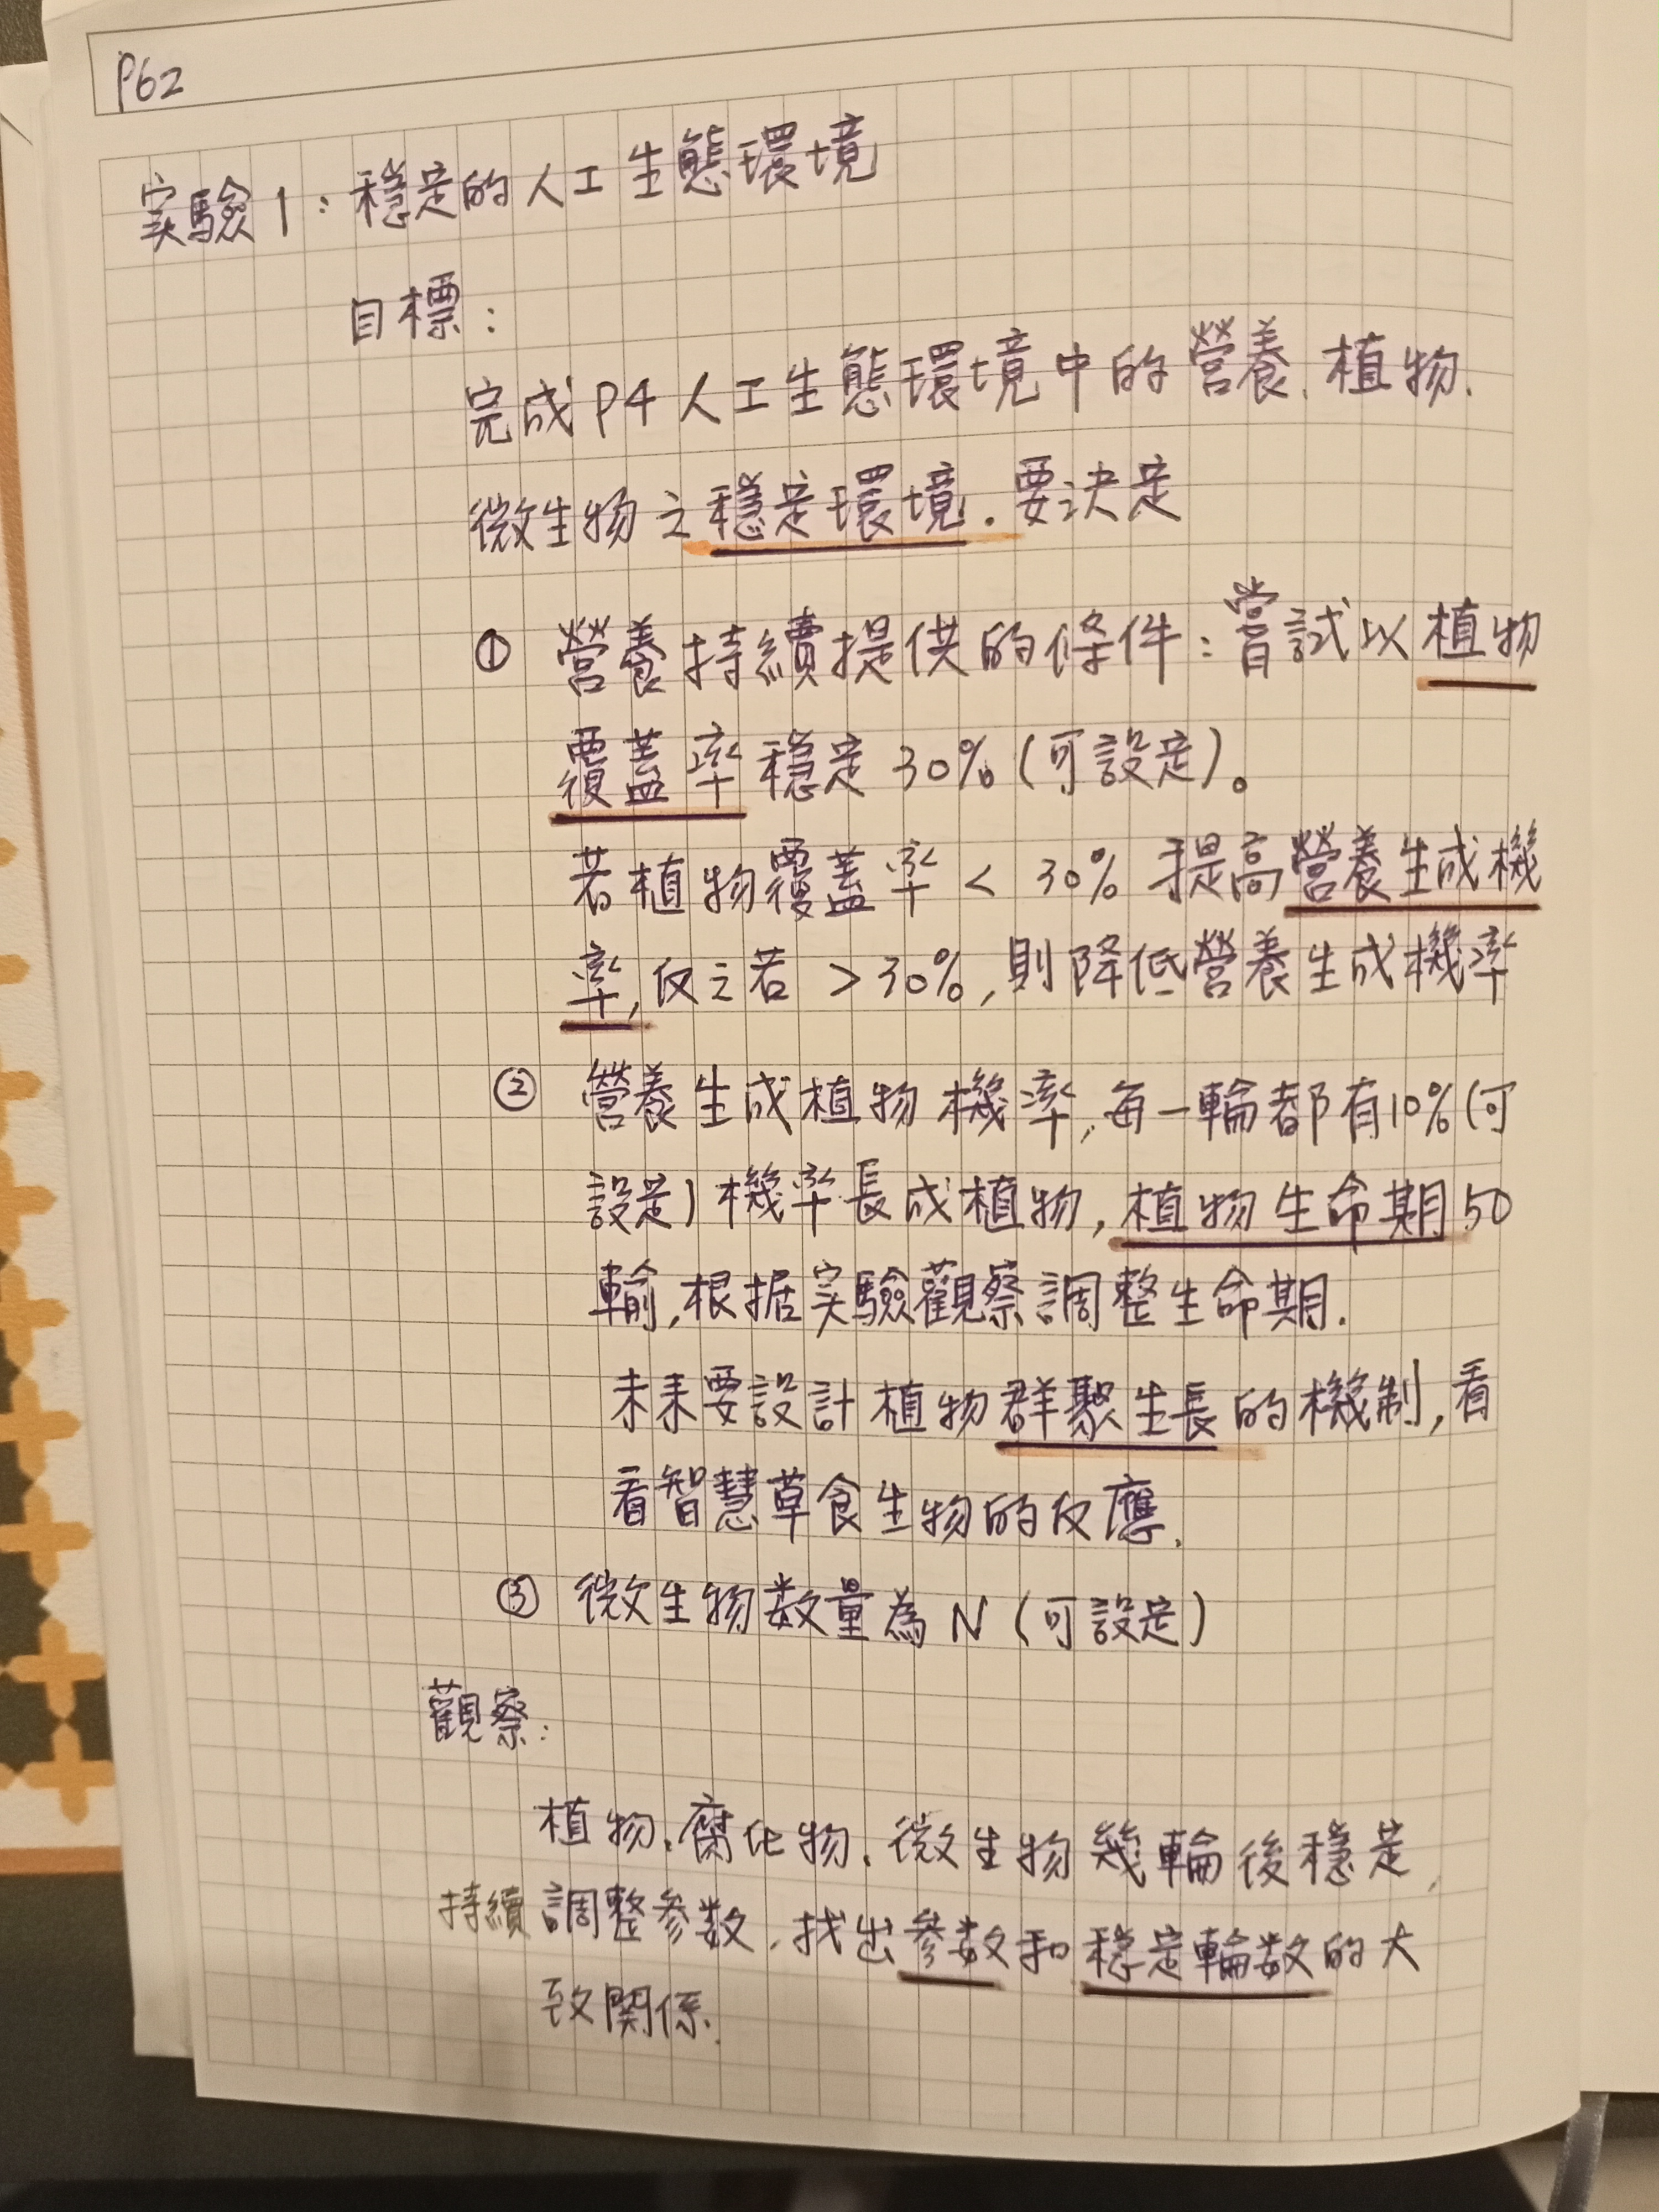 P62
实驗1：穩定的人工生態環境
目標：
完成P4人工生態環境中的營養、植物、
微生物之穩定環境．要決定
① 營養持續提供的條件：嘗試以植物
覆蓋率穩定30%(可設定)。
若植物覆蓋率<30%提高營養生成機
率，反之若>30%，則降低營養生成機率
② 營養生成植物機率，每一輪都有10%(可
設定)機率長成植物，植物生命期50
輪，根据实驗觀察調整生命期．
未来要設計植物群聚生長的機制，看
看智慧草食生物的反應．
③ 微生物数量為N(可設定)
觀察：
植物、腐化物、微生物幾輪後穩定，
持續調整参数，找出參数和穩定輪数的大
致関係．